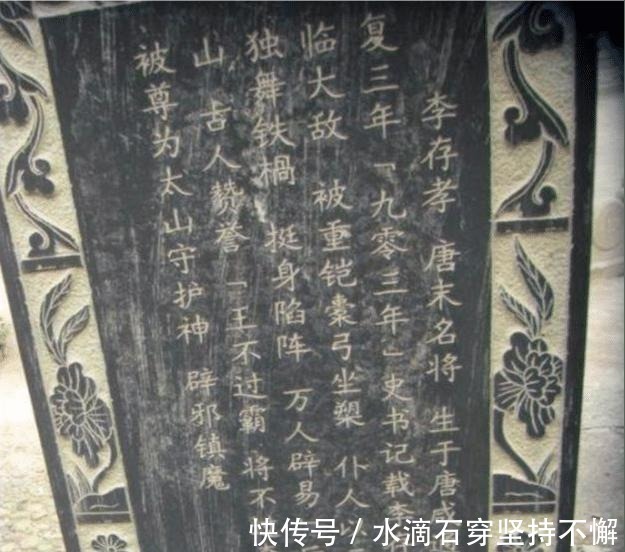 李存孝 唐末名将 生于唐咸
复三年「九零三年」史书记载李
临大敌 被重铠橐弓坐槊 仆人
独舞铁檛 挺身陷阵 万人辟易
山 古人赞誉「王不过霸 将不
被尊为太山守护神 辟邪镇魔
快传号 / 水滴石穿坚持不懈